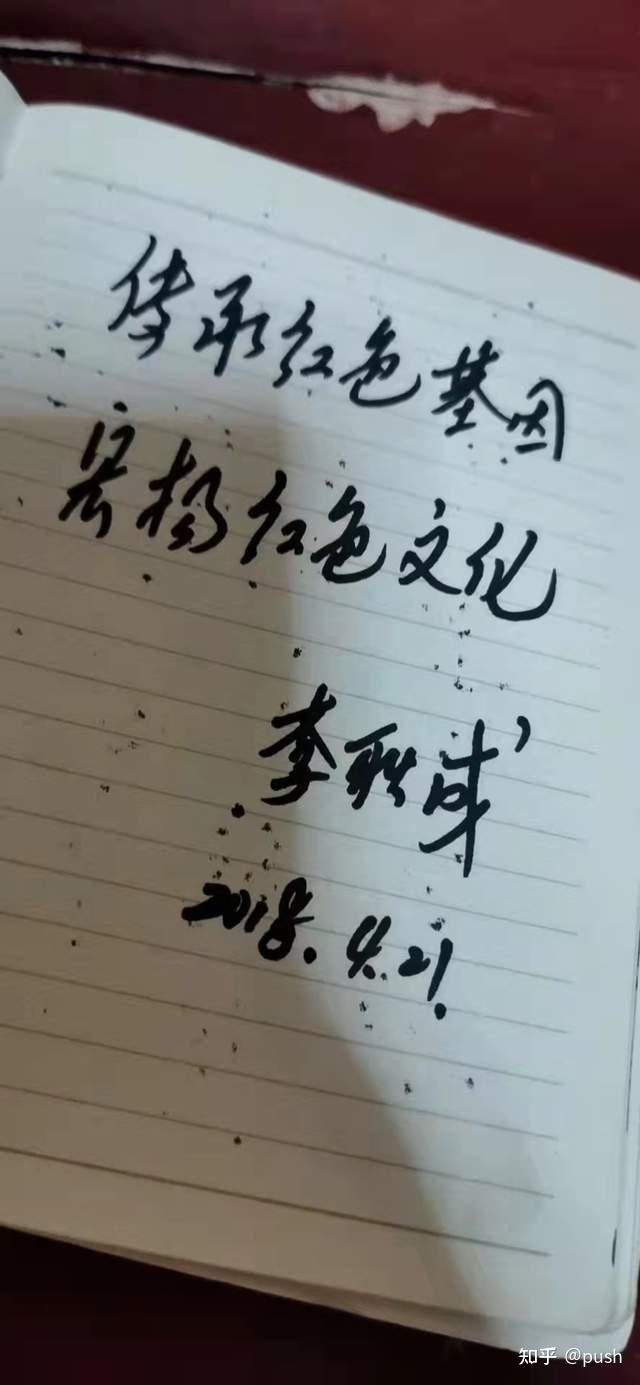 传承红色基因
宏扬红色文化
李联成
2018.4.21.
知乎 @push